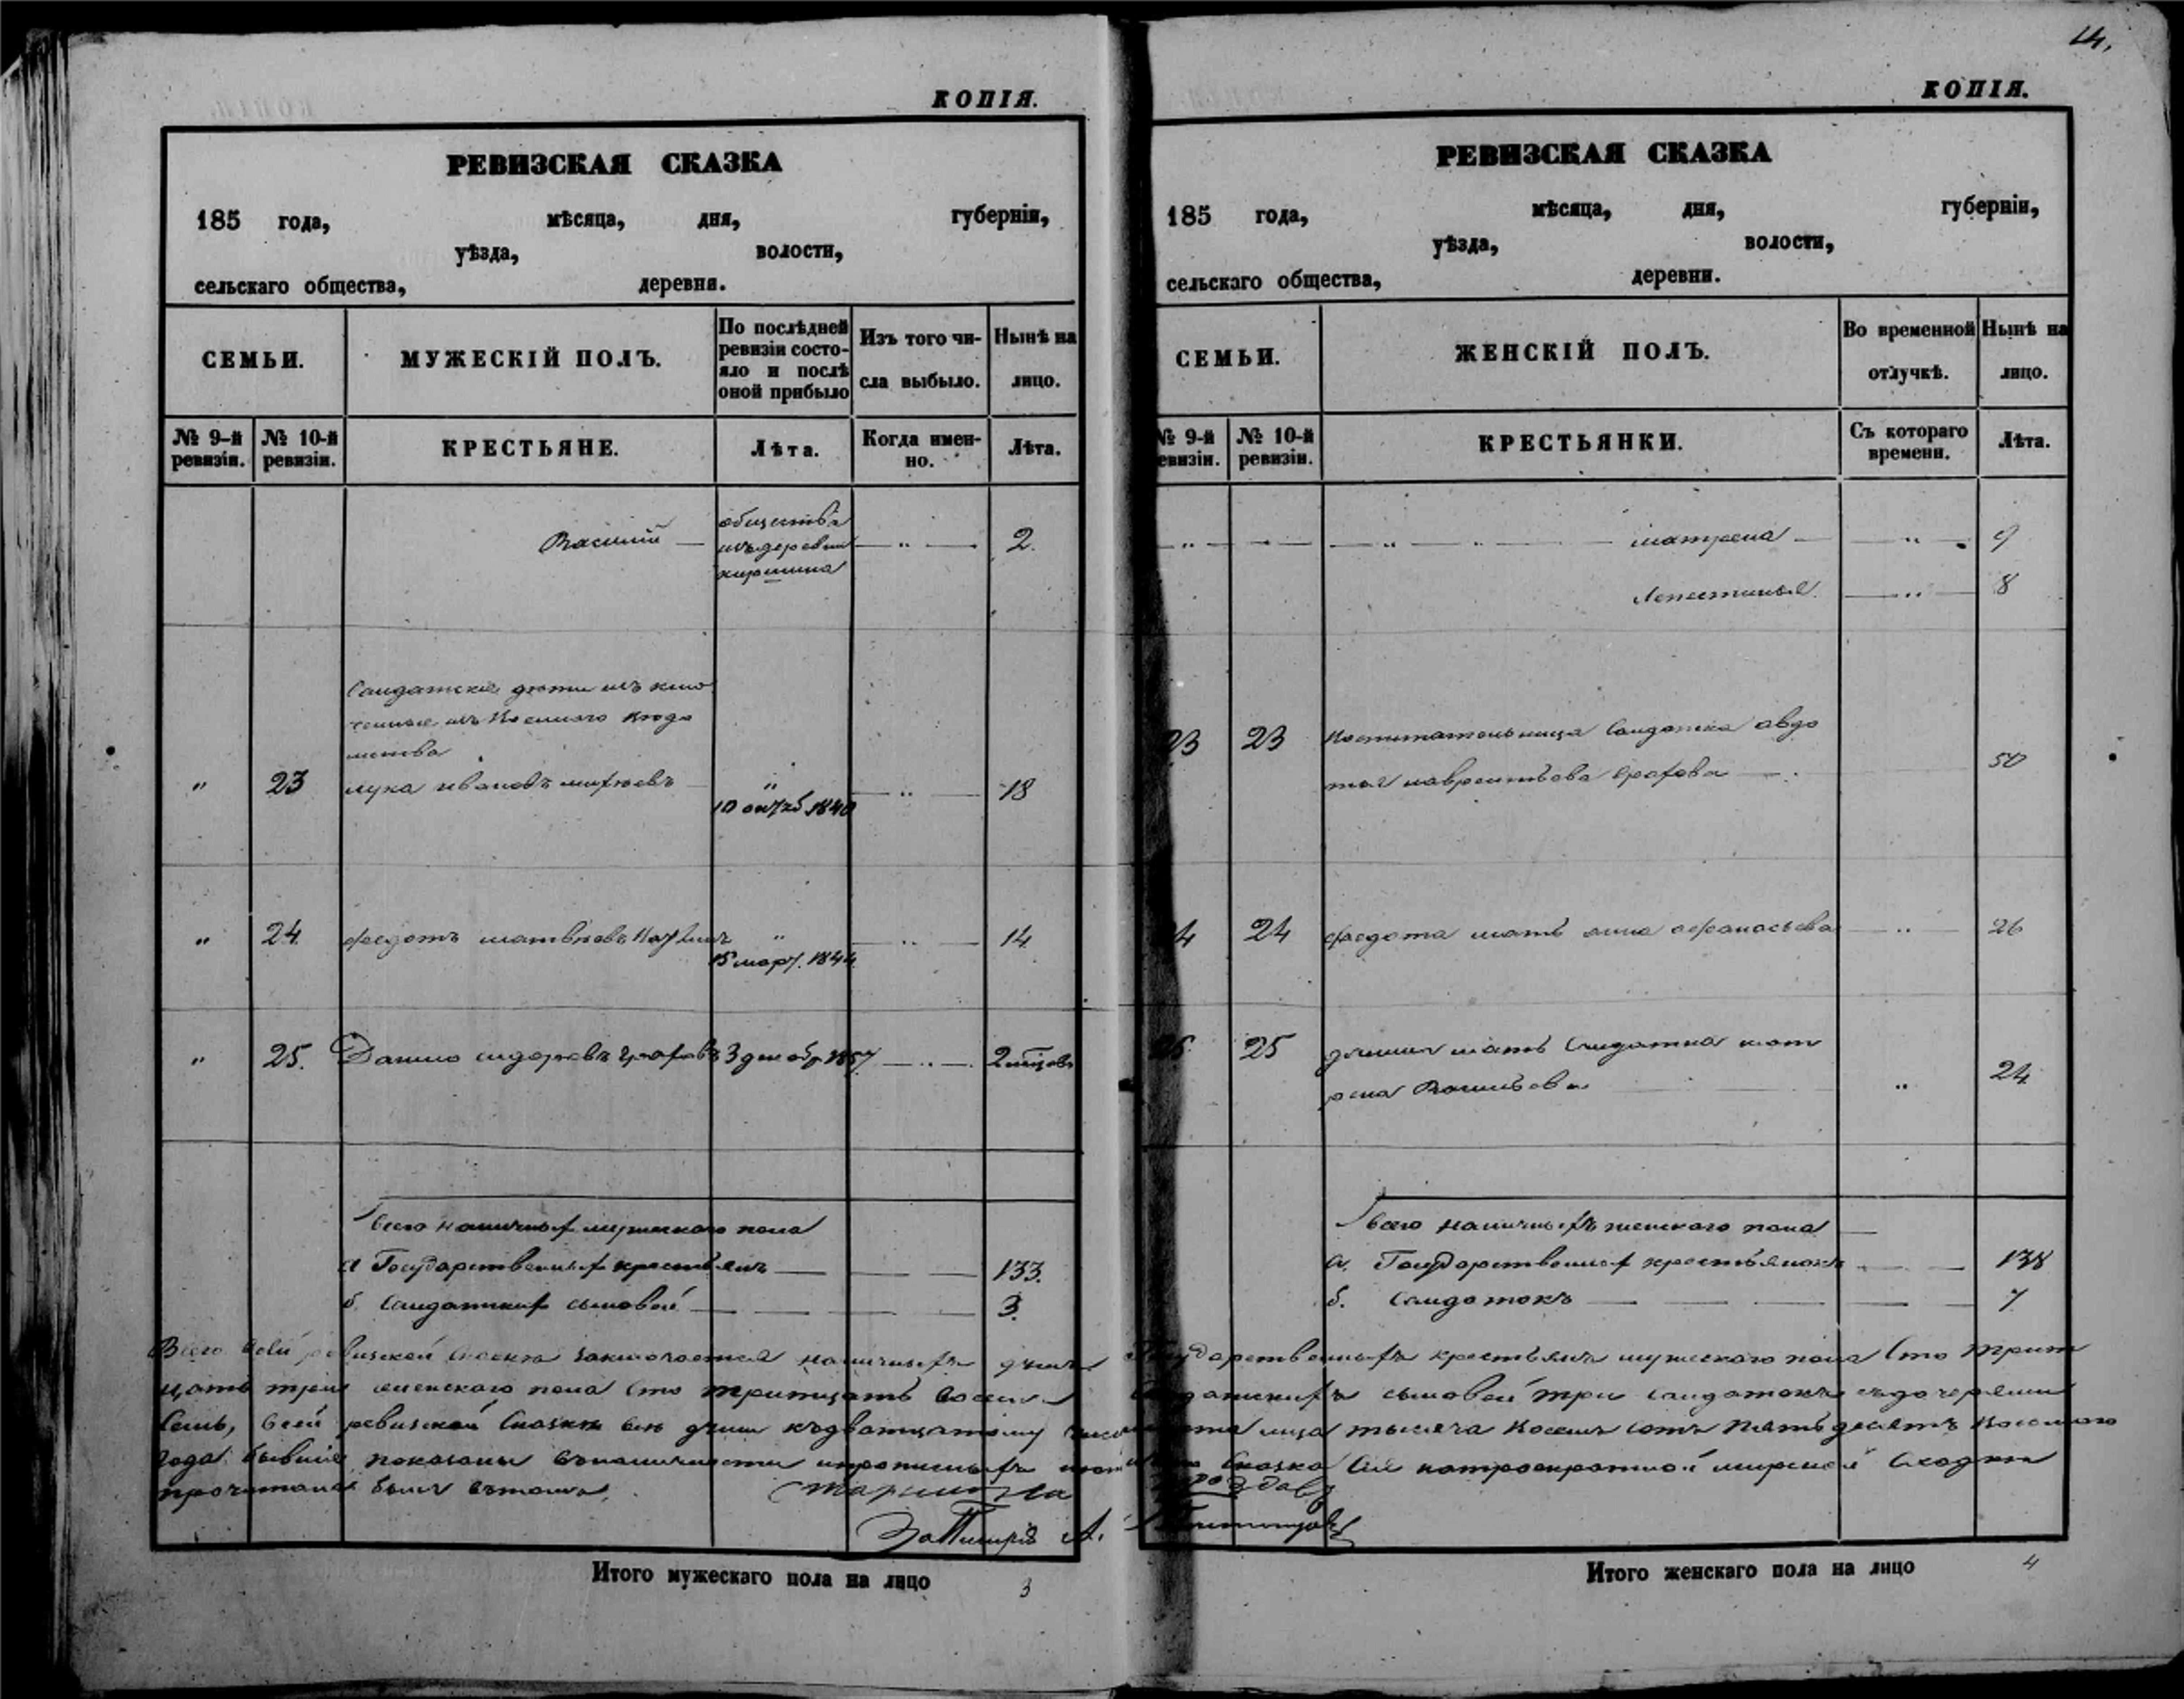 14.
КОПІЯ.
РЕВИЗСКАЯ СКАЗКА
185 года, мѣсяца, дня, губерніи,
уѣзда, волости,
сельскаго общества, деревни.
СЕМЬИ.
МУЖЕСКІЙ ПОЛЪ.
По послѣдней
ревизіи состо-
яло и послѣ
оной прибыло
Изъ того чи-
сла выбыло.
Нынѣ на
лицо.
№ 9-й
ревизіи.
№ 10-й
ревизіи.
КРЕСТЬЯНЕ.
Лѣта.
Когда имен-
но.
Лѣта.
Василій — общества — „ — 2.
изъ деревни
Солдатские дѣти исклю
ченные изъ Военного вѣдо
мства
„ 23 лука ивановъ „ — „ — 18
10 октяб. 1840
„ 24. федотъ матвѣевъ „ — „ — 14
15 март. 1844
„ 25. Данило сидоровъ 3 декабр 1857 — „ — 2 мѣсяца
Всего наличных мужескаго пола
а Государственных крестьянъ — 133.
б. Солдатских сыновей — 3.
Итого мужескаго пола на лицо 3
КОПІЯ.
РЕВИЗСКАЯ СКАЗКА
185 года, мѣсяца, дня, губерніи,
уѣзда, волости,
сельскаго общества, деревни.
СЕМЬИ.
ЖЕНСКІЙ ПОЛЪ.
Во временной
отлучкѣ.
Нынѣ на
лицо.
№ 9-й
ревизіи.
№ 10-й
ревизіи.
КРЕСТЬЯНКИ.
Съ котораго
времени.
Лѣта.
— „ — — — — „ — „ — матрена — „ — 9
— „ — 8
23 23 Воспитательница Солдатка авдо
тья лаврентьева 50
24 24 федота мать анна афанасьева — „ — 26
25 25 данилы мать Солдатка мат
рена Васильева „ 24
Всего наличныхъ женскаго пола —
а. Государственных крестьянокъ — 138
б. Солдатокъ — 7
Всего в сей ревизской сказкѣ заключается наличныхъ душъ Государственныхъ крестьянъ мужескаго пола Сто трит
цать три женскаго пола Сто тритцать восемь Солдатскихъ сыновей три солдатокъ съ дочерями
Семь, в сей ревизской Сказкѣ всѣ души къ двадцатому тысяча восемь сотъ пятьдесятъ восьмого
года бывшіе показаны прописных Сказка Сія на троекратной мирской Сходкѣ
прочитана была
Итого женскаго пола на лицо 4